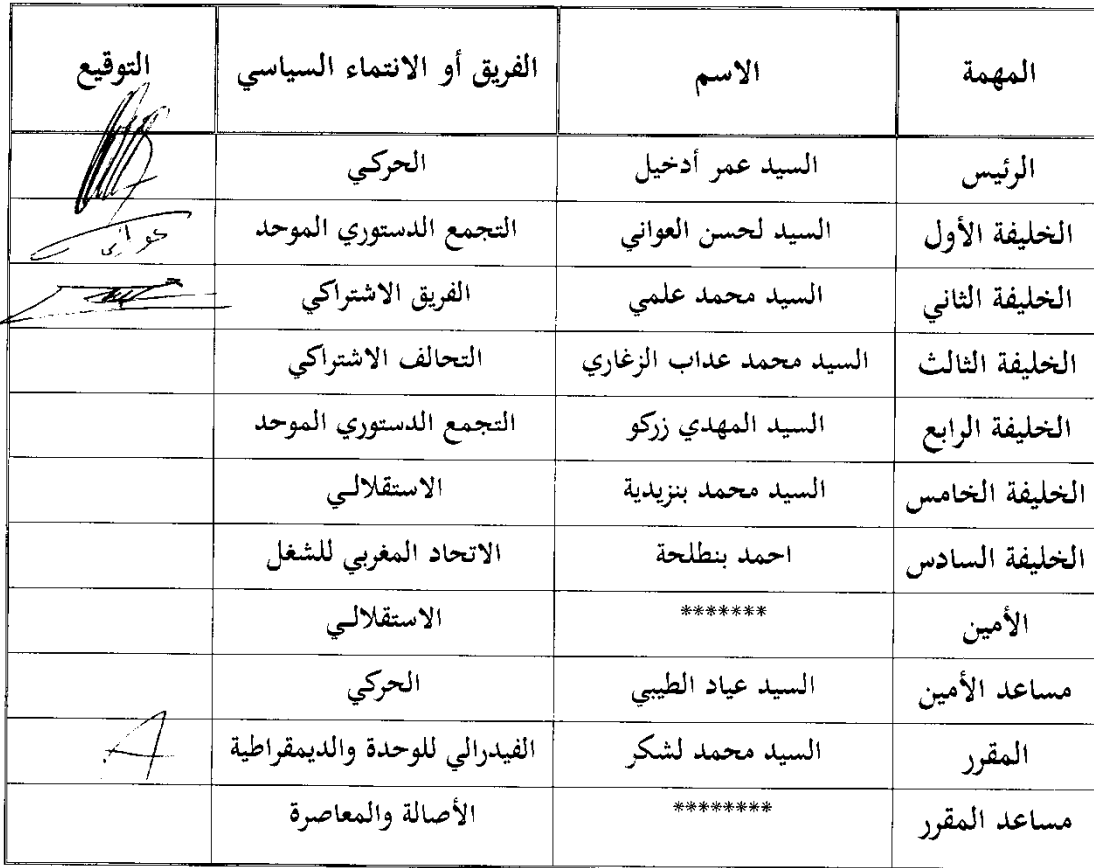 المهمة الاسم الفريق أو الانتماء السياسي التوقيع
الرئيس السيد عمر أدخيل الحركي
الخليفة الأول السيد لحسن العواني التجمع الدستوري الموحد
الخليفة الثاني السيد محمد علمي الفريق الاشتراكي
الخليفة الثالث السيد محمد عداب الزغاري التحالف الاشتراكي
الخليفة الرابع السيد المهدي زركو التجمع الدستوري الموحد
الخليفة الخامس السيد محمد بنزيدية الاستقلالي
الخليفة السادس احمد بنطلحة الاتحاد المغربي للشغل
الأمين ******* الاستقلالي
مساعد الأمين السيد عياد الطيبي الحركي
المقرر السيد محمد لشكر الفيدرالي للوحدة والديمقراطية
مساعد المقرر ******** الأصالة والمعاصرة